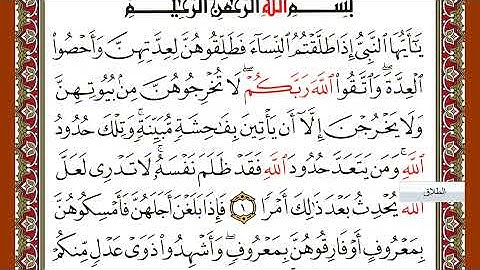 بِسْمِ اللَّهِ الرَّحْمَٰنِ الرَّحِيمِ
يَٰٓأَيُّهَا ٱلنَّبِىُّ إِذَا طَلَّقْتُمُ ٱلنِّسَآءَ فَطَلِّقُوهُنَّ لِعِدَّتِهِنَّ وَأَحْصُوا۟
ٱلْعِدَّةَ ۖ وَٱتَّقُوا۟ ٱللَّهَ رَبَّكُمْ ۖ لَا تُخْرِجُوهُنَّ مِنۢ بُيُوتِهِنَّ
وَلَا يَخْرُجْنَ إِلَّآ أَن يَأْتِينَ بِفَٰحِشَةٍ مُّبَيِّنَةٍ ۚ وَتِلْكَ حُدُودُ
ٱللَّهِ ۚ وَمَن يَتَعَدَّ حُدُودَ ٱللَّهِ فَقَدْ ظَلَمَ نَفْسَهُۥ ۚ لَا تَدْرِى لَعَلَّ
ٱللَّهَ يُحْدِثُ بَعْدَ ذَٰلِكَ أَمْرًا ١ فَإِذَا بَلَغْنَ أَجَلَهُنَّ فَأَمْسِكُوهُنَّ
بِمَعْرُوفٍ أَوْ فَارِقُوهُنَّ بِمَعْرُوفٍ وَأَشْهِدُوا۟ ذَوَىْ عَدْلٍ مِّنكُمْ
الطلاق